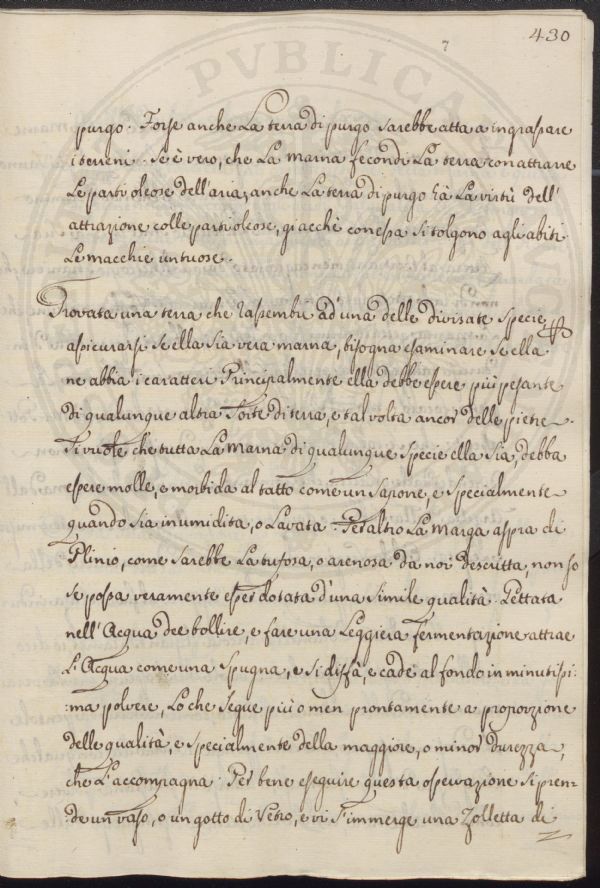 430
7
PVBLICA
purgo. Forse anche La terra di purgo sarebbe atta a ingrassare
i terreni. Se è vero, che La Marna fecondi La terra con attrarre
Le parti oleose dell'aria, anche La terra di purgo hà La virtù dell'
attrazione colle parti oleose, giacchè con essa si tolgono agli abiti
Le macchie untuose.
Trovata una terra che rassembri ad'una delle divisate Specie,
assicurarsi se ella sia vera marna, bisogna esaminare se ella
ne abbia i caratteri Principalmente ella debbe essere più pesante
di qualunque altra Sorte di terra, e tal volta ancor delle pietre.
Si vuole che tutta La Marna di qualunque Specie ella Sia, debba
essere molle, e morbida al tatto come un sapone, e Specialmente
quando sia inumidita, o Lavata. Peraltro La Marga aspra di
Plinio, come sarebbe La tufosa, o arenosa da noi descritta, non so
se possa veramente esser dotata d'una simile qualità. Gettata
nell'Acqua dee bollire, e fare una Leggiera fermentazione attrae
L'Acqua come una Spugna, e si disfà, e cade al fondo in minutissi:
:ma polvere, Lo che segue più o men prontamente a proporzione
delle qualità, e specialmente della maggiore, o minor durezza,
che L'accompagna. Per bene eseguire questa operazione si pren:
:de un vaso, o un gotto di Vetro, e vi s'immerge una Zolletta di